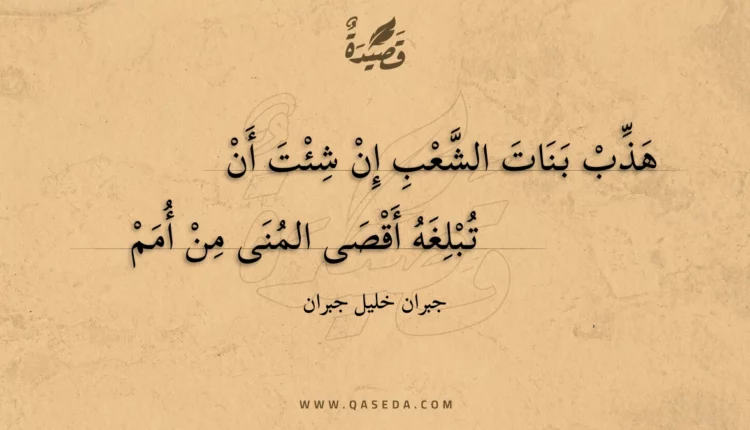 قَصِيْدَةٌ
هَذِّبْ بَنَاتَ الشَّعْبِ إِنْ شِئْتَ أَنْ
تُبْلِغَهُ أَقْصَى المُنَى مِنْ أُمَمْ
جبران خليل جبران
WWW.QASEDA.COM